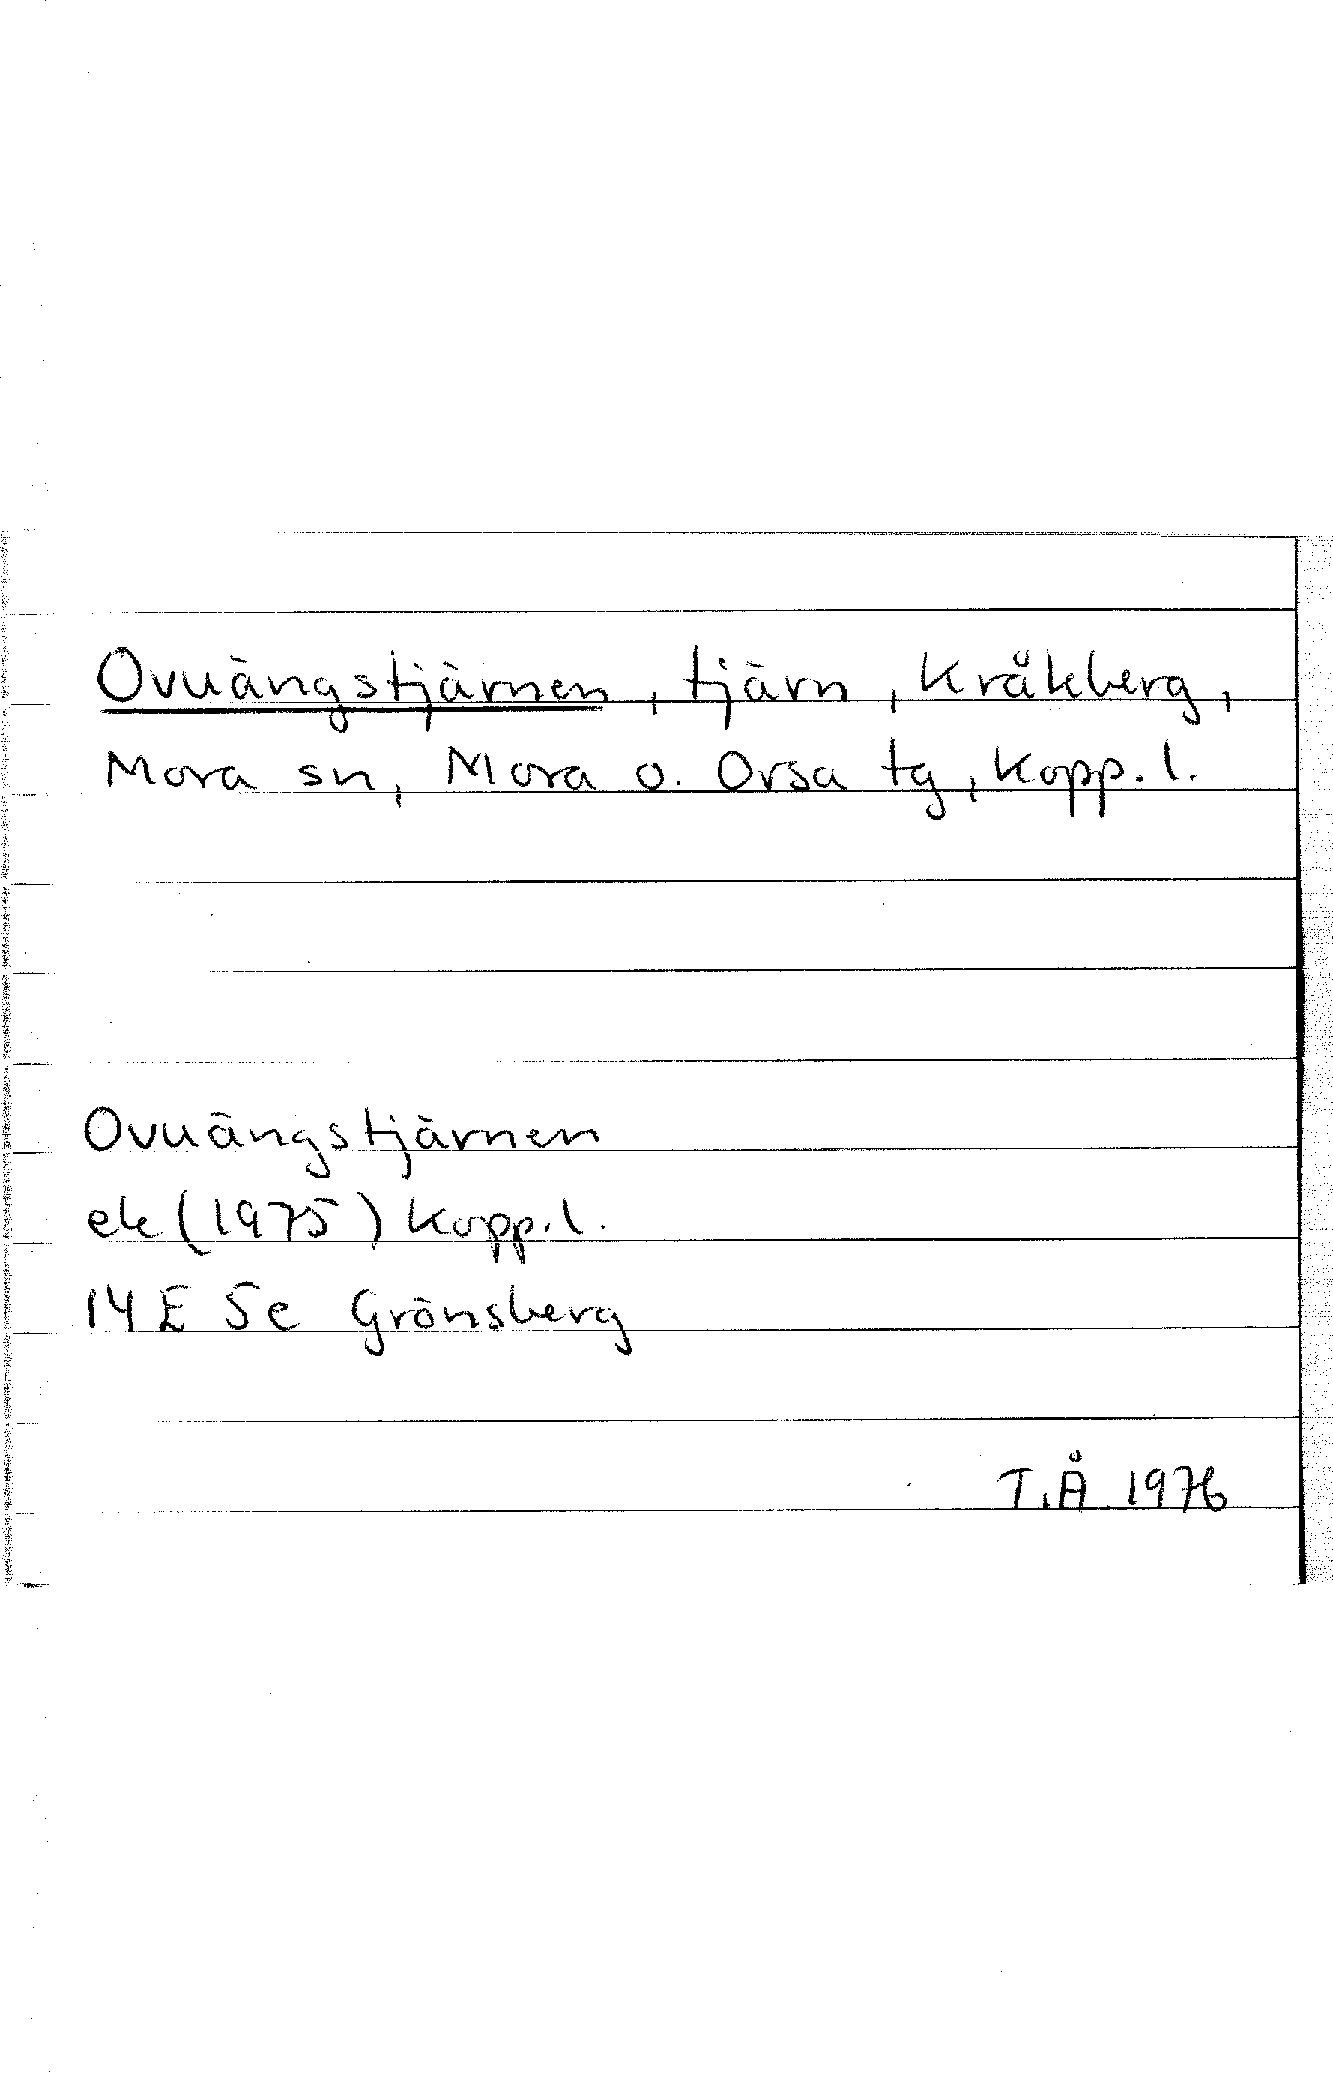 Ovuängstjärnen, tjärn, Kråkberg,
Mora sn, Mora o. Orsa tg, Kopp. l.
Ovuängstjärnen
ek (1975) Kopp. l.
14 E 5e Grönsberg
T.Å 1976